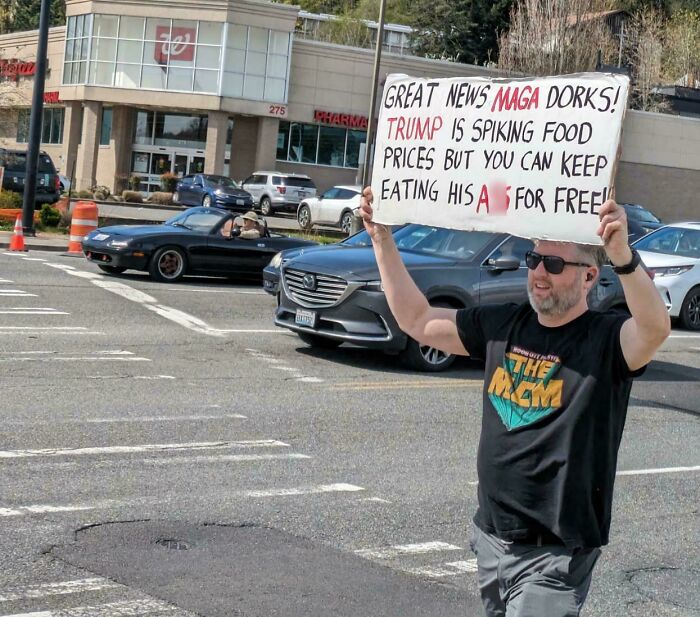 275
PHARMA
GREAT NEWS MAGA DORKS!
TRUMP IS SPIKING FOOD
PRICES BUT YOU CAN KEEP
EATING HIS A S FOR FREE!
THE